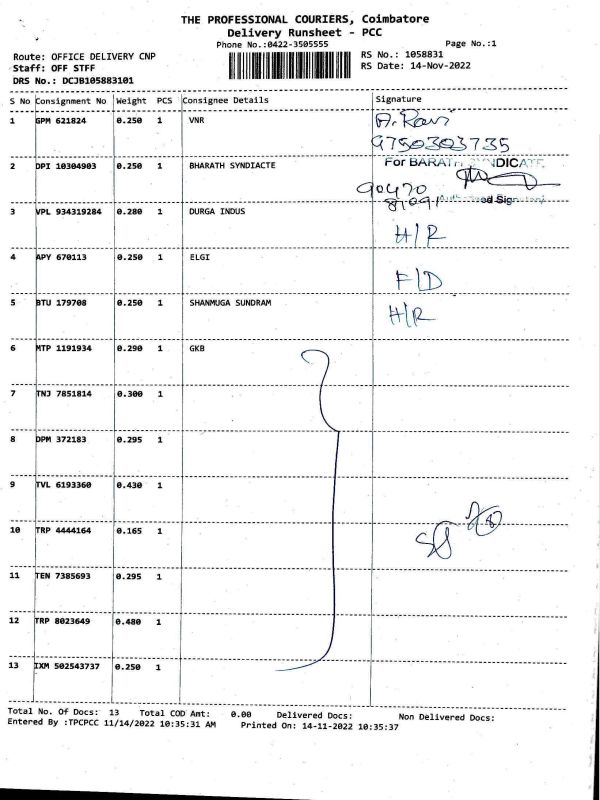 THE PROFESSIONAL COURIERS, Coimbatore
Delivery Runsheet - PCC
Phone No.:0422-3505555
Page No.:1
Route: OFFICE DELIVERY CNP
RS No.: 1058831
Staff: OFF STFF
RS Date: 14-Nov-2022
DRS No.: DCJB105883101
S No Consignment No Weight PCS Consignee Details Signature
1 GPM 621824 0.250 1 VNR A. Ravi
9750303735
2 DPI 10304903 0.250 1 BHARATH SYNDIACTE For BARATH SYNDICATE
90470
81091
3 VPL 934319284 0.280 1 DURGA INDUS H/R
4 APY 670113 0.250 1 ELGI F/D
5 BTU 179708 0.250 1 SHANMUGA SUNDRAM H/R
6 MTP 1191934 0.290 1 GKB
7 TNJ 7851814 0.300 1
8 DPM 372183 0.295 1
9 TVL 6193360 0.430 1
10 TRP 4444164 0.165 1
11 TEN 7385693 0.295 1
12 TRP 8023649 0.480 1
13 IXM 502543737 0.250 1
Total No. Of Docs: 13 Total COD Amt: 0.00 Delivered Docs: Non Delivered Docs:
Entered By :TPCPCC 11/14/2022 10:35:31 AM Printed On: 14-11-2022 10:35:37